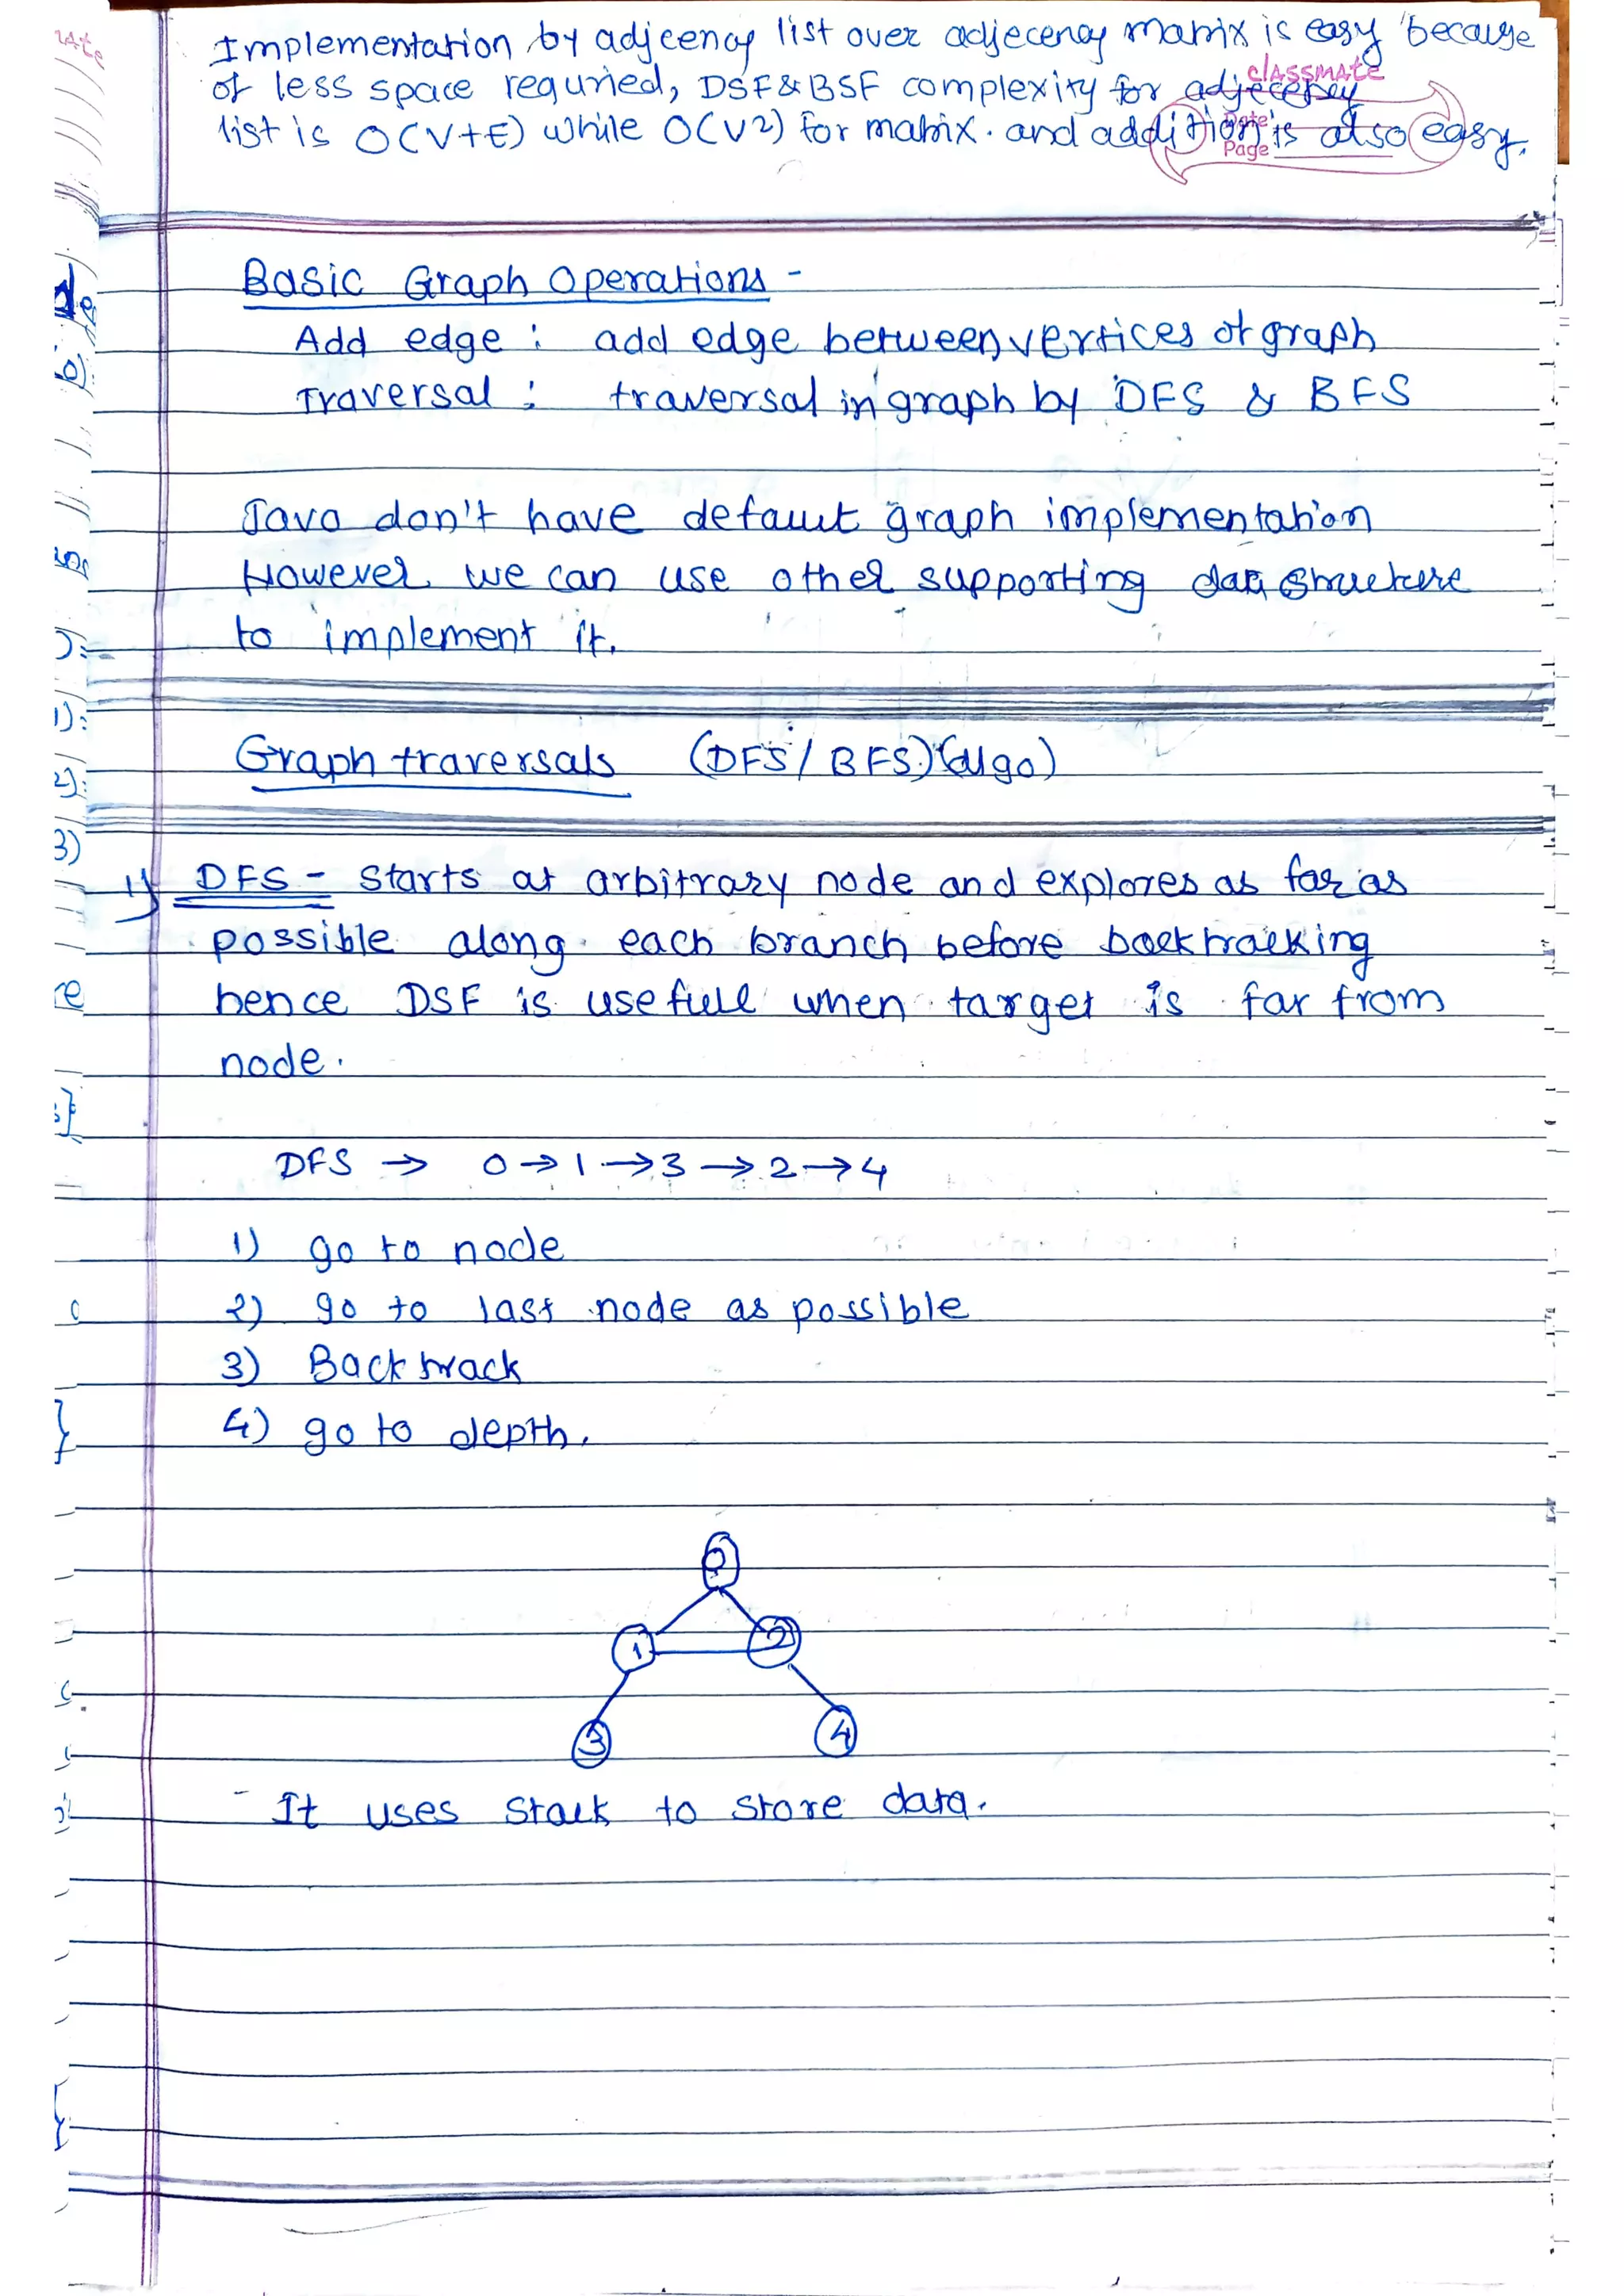 Implementation by adjcency list over adjecency matrix is easy because
of less space requried, DSF & BSF complexity for adjecency
classmate
Date
Page
list is O(V+E) while O(V2) for matrix. and addition is also easy.
Basic Graph Operations -
Add edge : add edge between vertices of graph
Traversal : traversal in graph by DFS & BFS
Java don't have default graph implementation
However we can use other supporting data structure
to implement it.
Graph traversals (DFS / BFS) (algo)
1) DFS - Starts at arbitrary node and explores as far as
possible along each branch before backtracking
hence DSF is usefull when target is far from
node.
DFS → 0 → 1 → 3 → 2 → 4
1) go to node
2) go to last node as possible
3) Backtrack
4) go to depth.
0
1 2
3 4
- It uses stack to store data.